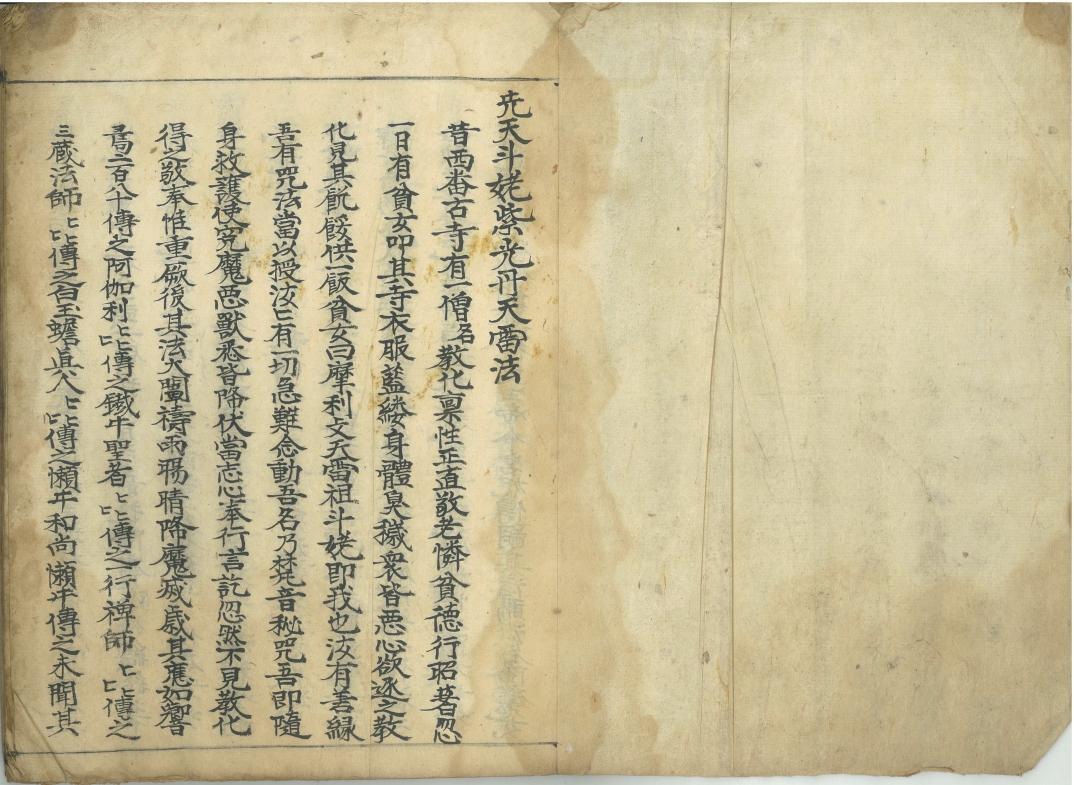 先天斗姥紫光丹天雷法
昔西番古寺有一僧名教化禀性正直敬老憐貧德行昭著忽
一日有貧女叩其寺衣服藍縷身體臭穢衆皆悪心欲逐之教
化見其飢餒供一飯貧女曰摩利文天雷祖斗姥即我也汝有善緣
吾有咒法當以授汝匕有一切急難念動吾名乃梵音秘咒吾即隨
身救護使究魔悪獸悉皆降伏當志心奉行言訖忽然不見教化
得之敬奉惟重厥後其法大闡禱雨暘晴降魔滅歲其應如響
焉二百八十傳之阿伽利匕匕匕傳之鐵牛聖者匕匕匕傳之一行禅師匕匕匕傳之
三蔵法師匕匕匕傳之白玉蟾真人匕匕匕傳之懶牛和尚懶牛傳之未聞其